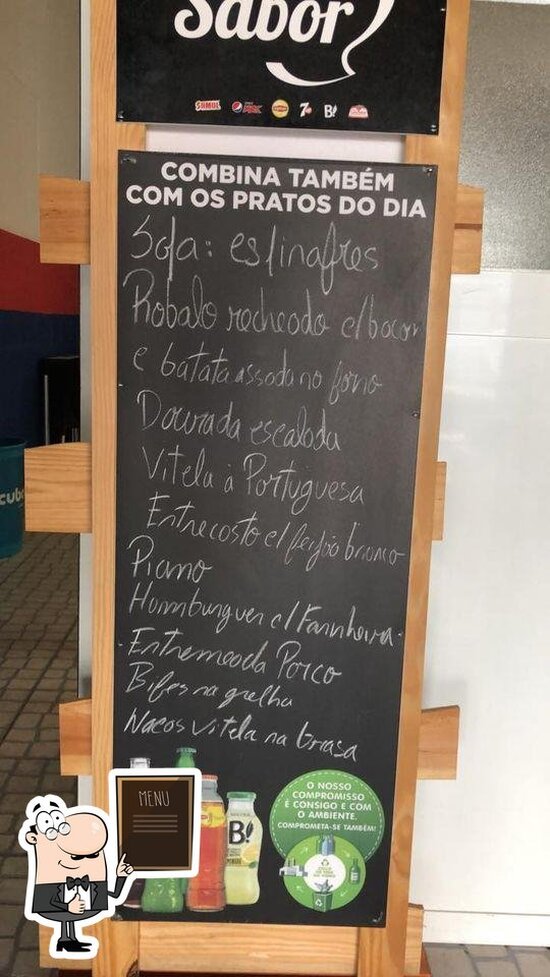 Sabor
SUMOL
7
B!
COMBINA TAMBÉM
COM OS PRATOS DO DIA
Sopa: espinafres
Robalo recheado c/bacon
e batata assada no forno
Dourada escalada
Vitela à Portuguesa
Entrecosto c/ feijão branco
Piano
Hamburguer c/ Farinheira
Entremeada Porco
Bifes na grelha
Nacos vitela na brasa
MENU
B!
O NOSSO
COMPROMISSO
É CONSIGO E COM
O AMBIENTE.
COMPROMETA-SE TAMBÉM!
cub